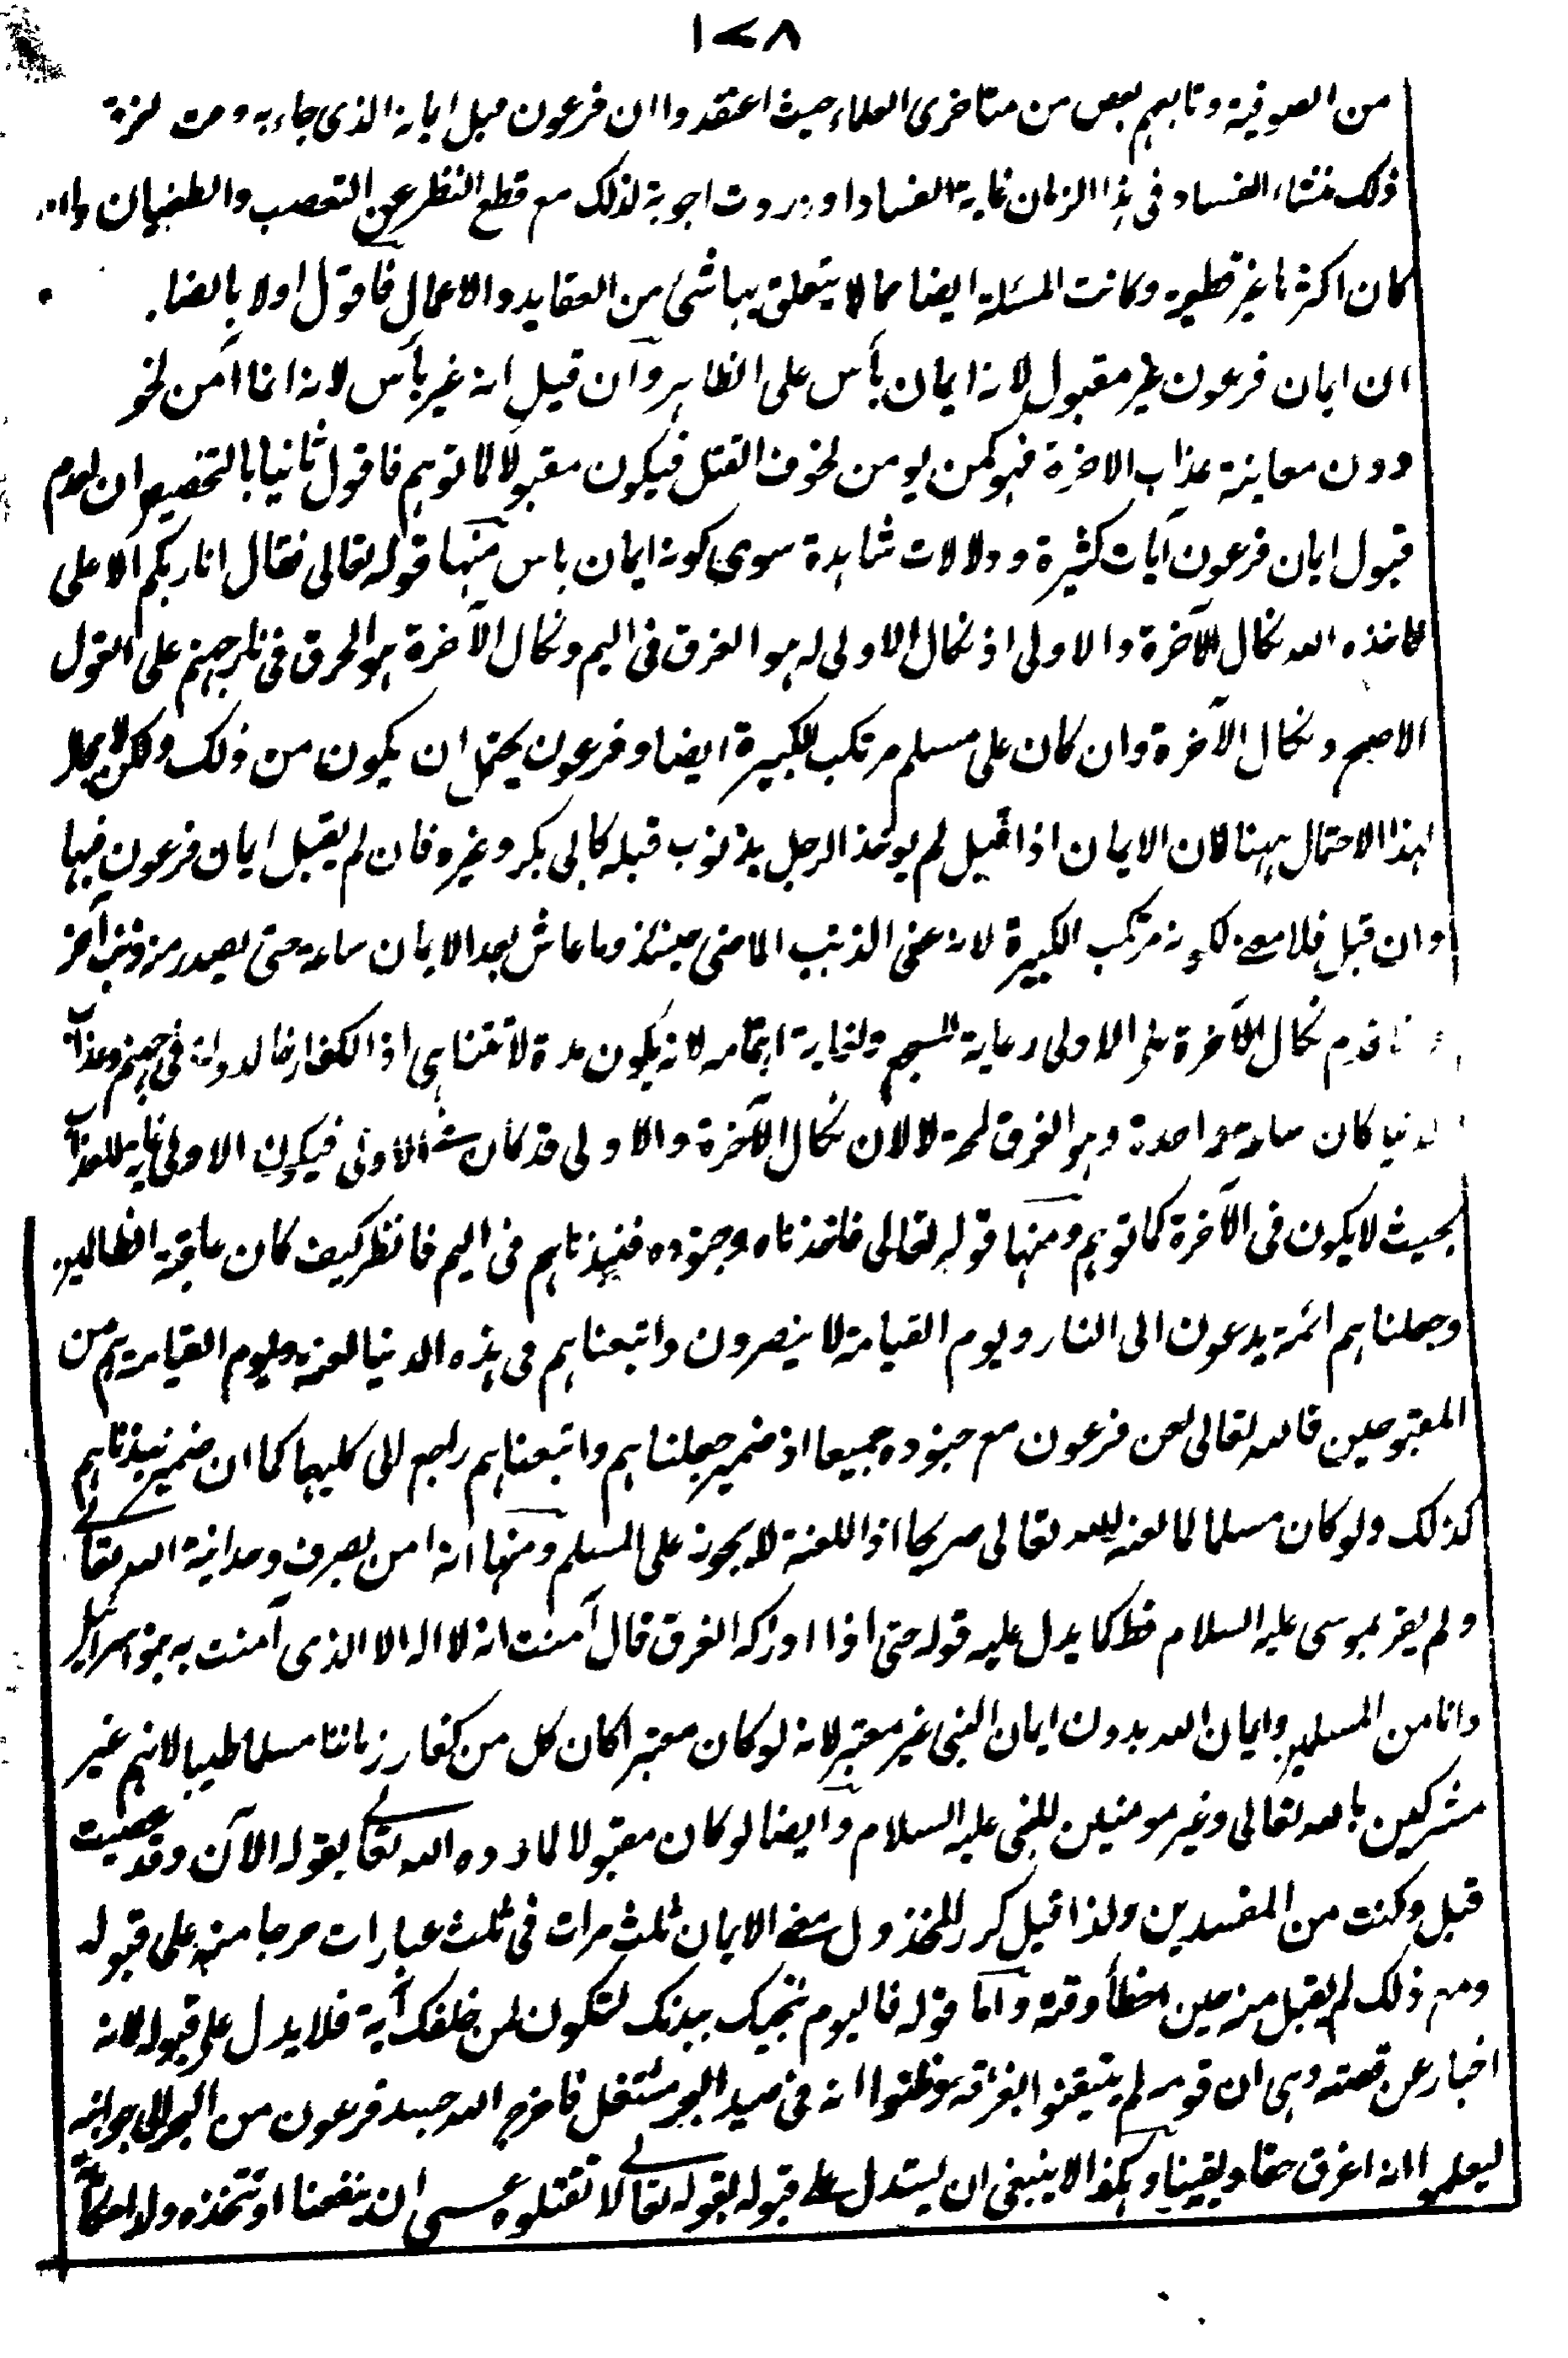 ١٧٨
من الصوفية وتابهم بعض من متاخرى العلماء حيث اعتقدوا ان فرعون قبل ايمانه الذى جاء به وقت
ذلك منشاء الفساد فى هذا الزمان غاية الفساد اوردت اجوبة لذلك مع قطع النظر عن التعصب والطغيان وان
كان اكثرها غير قطعية وكانت المسئلة ايضا مما لا يتعلق بها شئ من العقايد والاعمال فاقول اولا
ان ايمان فرعون غير مقبول لانه ايمان بأس على الظاهر وان قيل انه غير بأس لانه انما آمن
دون معاينة عذاب الاخرة فهو كمن يومن لخوف القتل فيكون مقبولا كما توهم فاقول ثانيا بالتحقيق ان لعدم
قبول ايمان فرعون آيات كثيرة ودلالات شاهدة سوى كونه ايمان باس منها قوله تعالى فقال انا ربكم الاعلى
فاخذه الله نكال الآخرة والاولى اذ نكال الاولى له هو الغرق فى اليم ونكال الآخرة هو الحرق فى نار جهنم على القول
الاصح ونكال الآخرة وان كان على مسلم مرتكب للكبيرة ايضا وفرعون يحتمل ان يكون من ذلك ولكن لا مجال
لهذا الاحتمال ههنا لان الايمان اذا قبل لم يوخذ الرجل بذنوب قبله كابى بكر وغيره فان لم يقبل ايمان فرعون فبها
وان قبل فلا معنى لكونه مرتكب الكبيرة لانه عفى الذنب الماضى حينئذ وما عاش بعد الايمان ساعة حتى يصدر منه ذنب آخر
قدم نكال الآخرة على الاولى رعاية للسجع ولغاية اهتمامه لانه يكون مدة لا تتناهى اذ الكفار خالدون فى جهنم وعذاب
الدنيا كان ساعة واحدة وهو الغرق لمحة لا لان نكال الآخرة والاولى قد كان فى الاولى فيكون الاولى غاية للعذاب
بحيث لا يكون فى الآخرة كما توهم ومنها قوله تعالى فاخذناه وجنوده فنبذناهم فى اليم فانظر كيف كان عاقبة الظالمين
وجعلناهم ائمة يدعون الى النار ويوم القيامة لا ينصرون واتبعناهم فى هذه الدنيا لعنة ويوم القيامة هم من
المقبوحين فالله تعالى لعن فرعون مع جنوده جميعا اذ ضمير جعلناهم واتبعناهم راجع الى كليهما كما ان ضمير نبذناهم
كذلك ولو كان مسلما لما لعنه الله تعالى صريحا اذ اللعنة لا يجوز على المسلم ومنها انه امن بصرف وحدانية الله تعالى
ولم يقر بموسى عليه السلام قط كما يدل عليه قوله حتى اذا ادركه الغرق قال آمنت انه لا اله الا الذى آمنت به بنو اسرائيل
وانا من المسلمين وايمان الله بدون ايمان النبى غير معتبر لانه لو كان معتبرا كان كل من كفار زماننا مسلما طيبا لانهم غير
مشركين بالله تعالى وغير مومنين للنبى عليه السلام وايضا لو كان مقبولا لما رده الله تعالى بقوله الآن وقد عصيت
قبل وكنت من المفسدين ولذا قيل كرر المخذول معنى الايمان ثلث مرات فى ثلث عبارات حرصا منه على قبوله
ومع ذلك لم يقبل منه حين اخطأ وقته واما قوله فاليوم ننجيك ببدنك لتكون لمن خلفك آية فلا يدل على قبوله لانه
اخبار عن قصته وهى ان قومه لم يتيقنوا بغرقه وظنوا انه فى صيد البحر مشتغل فاخرج الله جسد فرعون من البحر الى جوانبه
ليعلموا انه اغرق حقا ويقينا وهكذا لا ينبغى ان يستدل على قبوله بقوله تعالى لا تقتلوه عسى ان ينفعنا او نتخذه ولدا